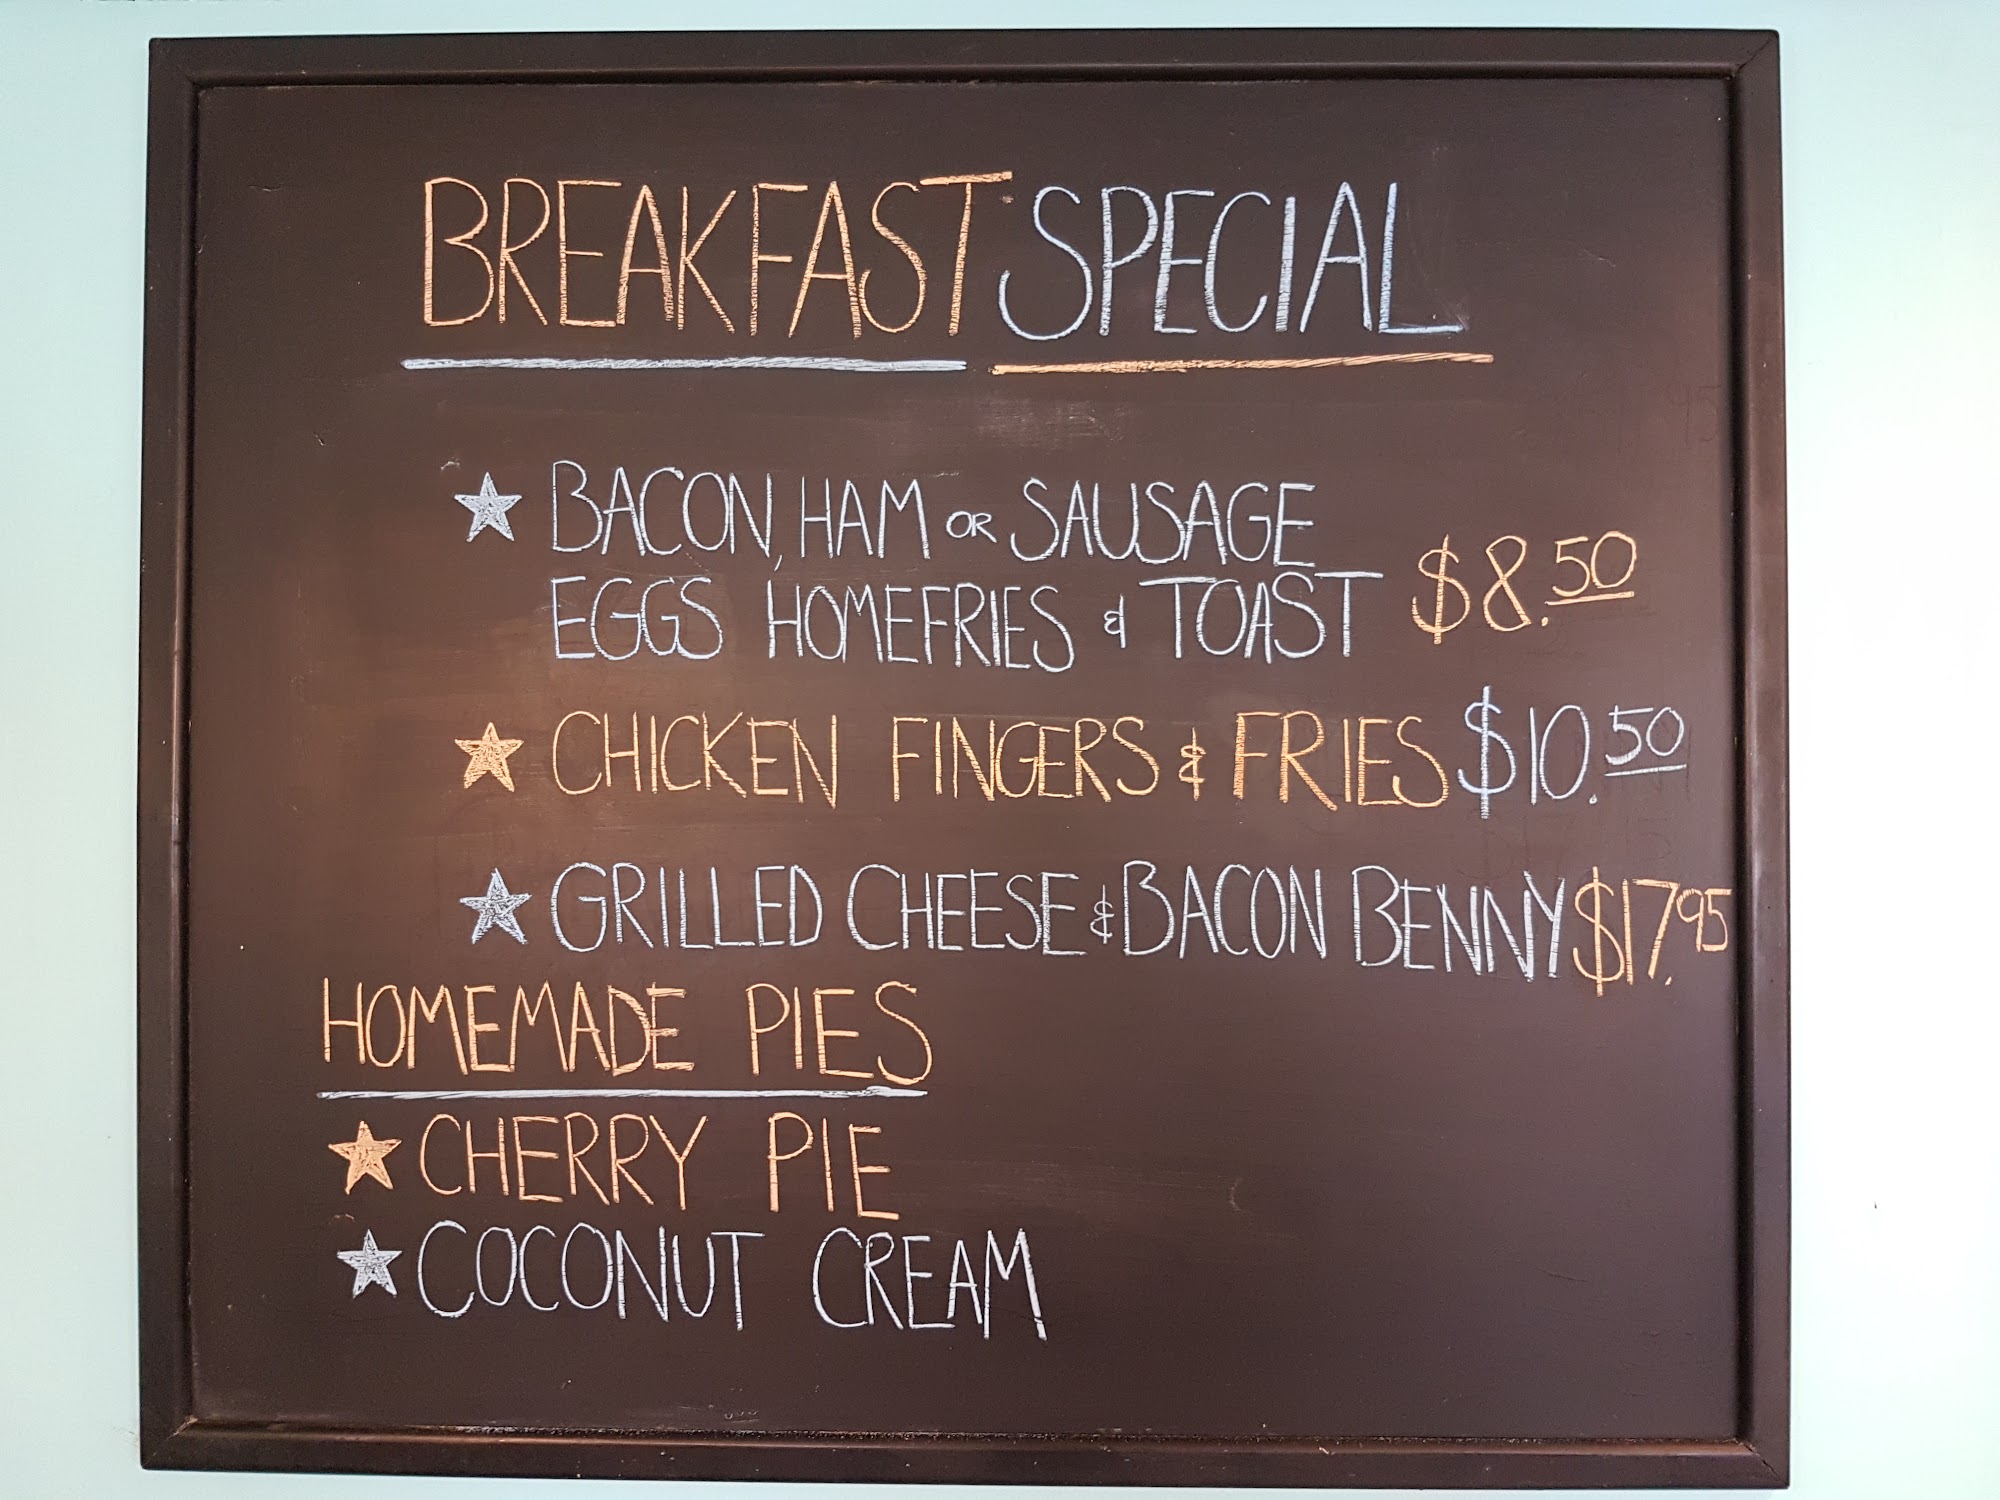 BREAKFAST SPECIAL
BACON, HAM OR SAUSAGE
EGGS HOMEFRIES & TOAST $8.50
CHICKEN FINGERS & FRIES $10.50
GRILLED CHEESE & BACON BENNY $17.95
HOMEMADE PIES
CHERRY PIE
COCONUT CREAM